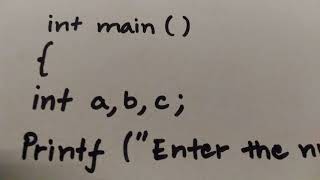 int main ()
{
int a, b, c ;
Printf ("Enter the